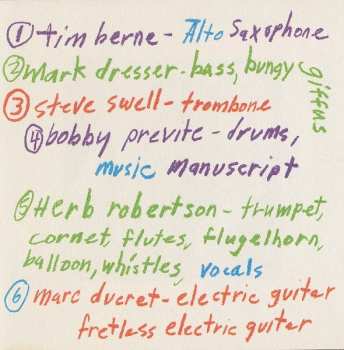 ① tim berne - Alto Saxophone
② mark dresser - bass, bungy giffus
③ steve swell - trombone
④ bobby previte - drums,
music manuscript
⑤ Herb robertson - trumpet,
cornet, flutes, flugelhorn,
balloon, whistles, vocals
⑥ marc ducret - electric guitar
fretless electric guitar